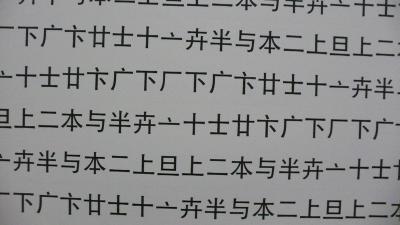 二上旦上二本与半卉亠十士
下广卞廿士十亠卉半与本二上旦上二
亠十士廿卞广下厂下广卞廿士十亠卉半
旦上二本与半卉亠十士廿卞广下厂下广
卉半与本二上旦上二本与半卉亠十士廿
下广卞廿士十亠卉半与本二上旦上二本